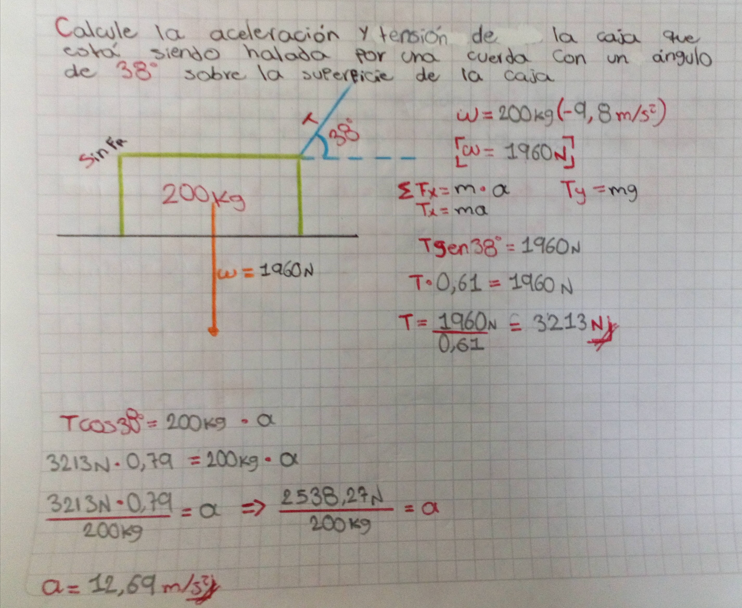 Calcule la aceleración y tensión de la caja que
está siendo halada por una cuerda con un ángulo
de 38° sobre la superficie de la caja
T
38°
Sin FR
200kg
ω = 1960N
ω = 200kg (-9,8 m/s²)
[ω = 1960N]
ΣFx = m · a Ty = mg
Tx = ma
Tsen38° = 1960N
T · 0,61 = 1960N
T = 1960N / 0,61 = 3213N
Tcos38° = 200kg · a
3213N · 0,79 = 200kg · a
3213N · 0,79 / 200kg = a => 2538,27N / 200kg = a
a = 12,69 m/s²